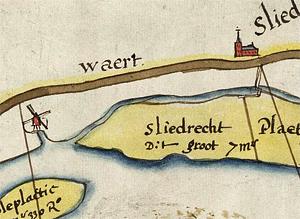 Slied
waert.
Sliedrecht Plaet
Dit groot 7 mr
leplaetic